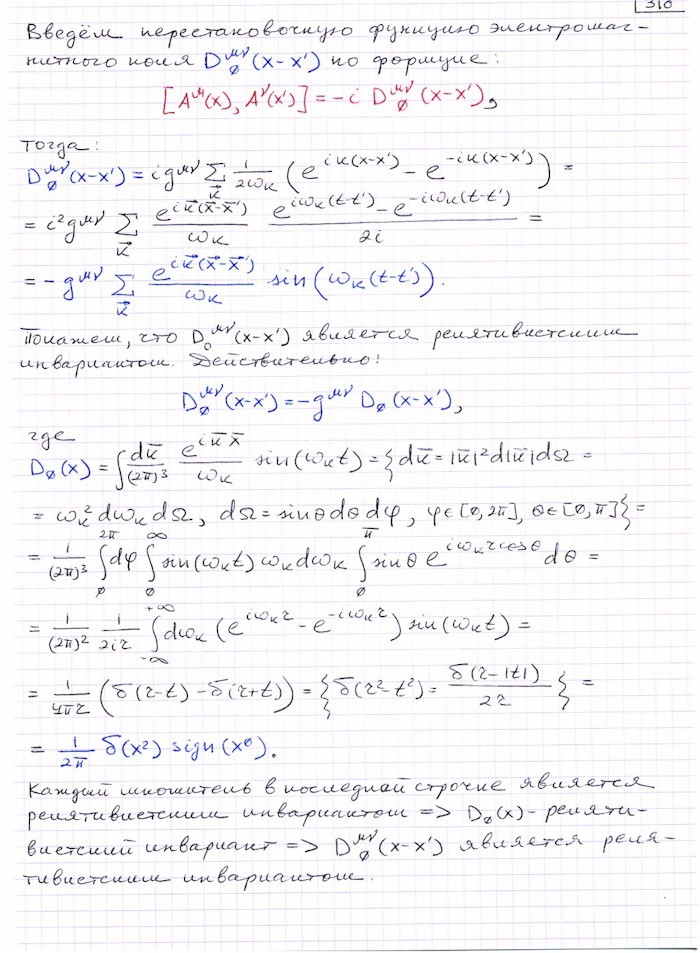 310
Введём перестановочную функцию электромаг-
нитного поля D₀^{μν}(x-x') по формуле:
[A^μ(x), A^ν(x')] = -i D₀^{μν}(x-x'),
тогда:
D₀^{μν}(x-x') = i g^{μν} Σ_{k⃗} 1/(2ω_k) (e^{ik(x-x')} - e^{-ik(x-x')}) =
= i² g^{μν} Σ_{k⃗} e^{ik⃗(x⃗-x⃗')}/ω_k · (e^{iω_k(t-t')} - e^{-iω_k(t-t')})/2i =
= -g^{μν} Σ_{k⃗} e^{ik⃗(x⃗-x⃗')}/ω_k sin(ω_k(t-t')).
Покажем, что D₀^{μν}(x-x') является релятивистским
инвариантом. Действительно:
D₀^{μν}(x-x') = -g^{μν} D₀(x-x'),
где
D₀(x) = ∫ dk̄/(2π)³ e^{ik̄x̄}/ω_k sin(ω_k t) = {dk̄ = |k̄|² d|k̄| dΩ =
= ω_k² dω_k dΩ, dΩ = sinθ dθ dφ, φ∈[0,2π], θ∈[0,π]} =
= 1/(2π)³ ∫_0^{2π} dφ ∫_0^∞ sin(ω_k t) ω_k dω_k ∫_0^π sinθ e^{iω_k r cosθ} dθ =
= 1/(2π)² 1/(2ir) ∫_{-∞}^{+∞} dω_k (e^{iω_k r} - e^{-iω_k r}) sin(ω_k t) =
= 1/(4πr) (δ(r-t) - δ(r+t)) = {δ(r²-t²) = δ(r-|t|)/2r} =
= 1/(2π) δ(x²) sign(x⁰).
Каждый множитель в последней строчке является
релятивистским инвариантом => D₀(x) - реляти-
вистский инвариант => D₀^{μν}(x-x') является реля-
тивистским инвариантом.